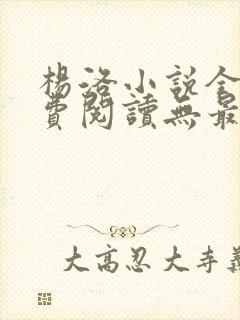 楊洛小說全
費閱讀無最
大高忍大寺